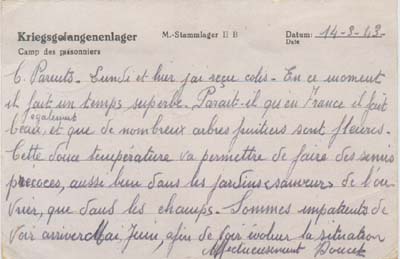 Kriegsgefangenenlager M.-Stammlager II B Datum: 14-3-43-
Camp des prisonniers Date
C. Parents. Lundi et hier j'ai reçu colis. En ce moment
il fait un temps superbe. Paraît-il qu'en France il fait
également
beau, et que de nombreux arbres fruitiers sont fleuris.
Cette douce température va permettre de faire des semis
précoces, aussi bien dans les jardins "sauveurs" de l'ou-
vrier, que dans les champs. Sommes impatients de
voir arriver Mai, Juin, afin de voir évoluer la situation
Affectueusement